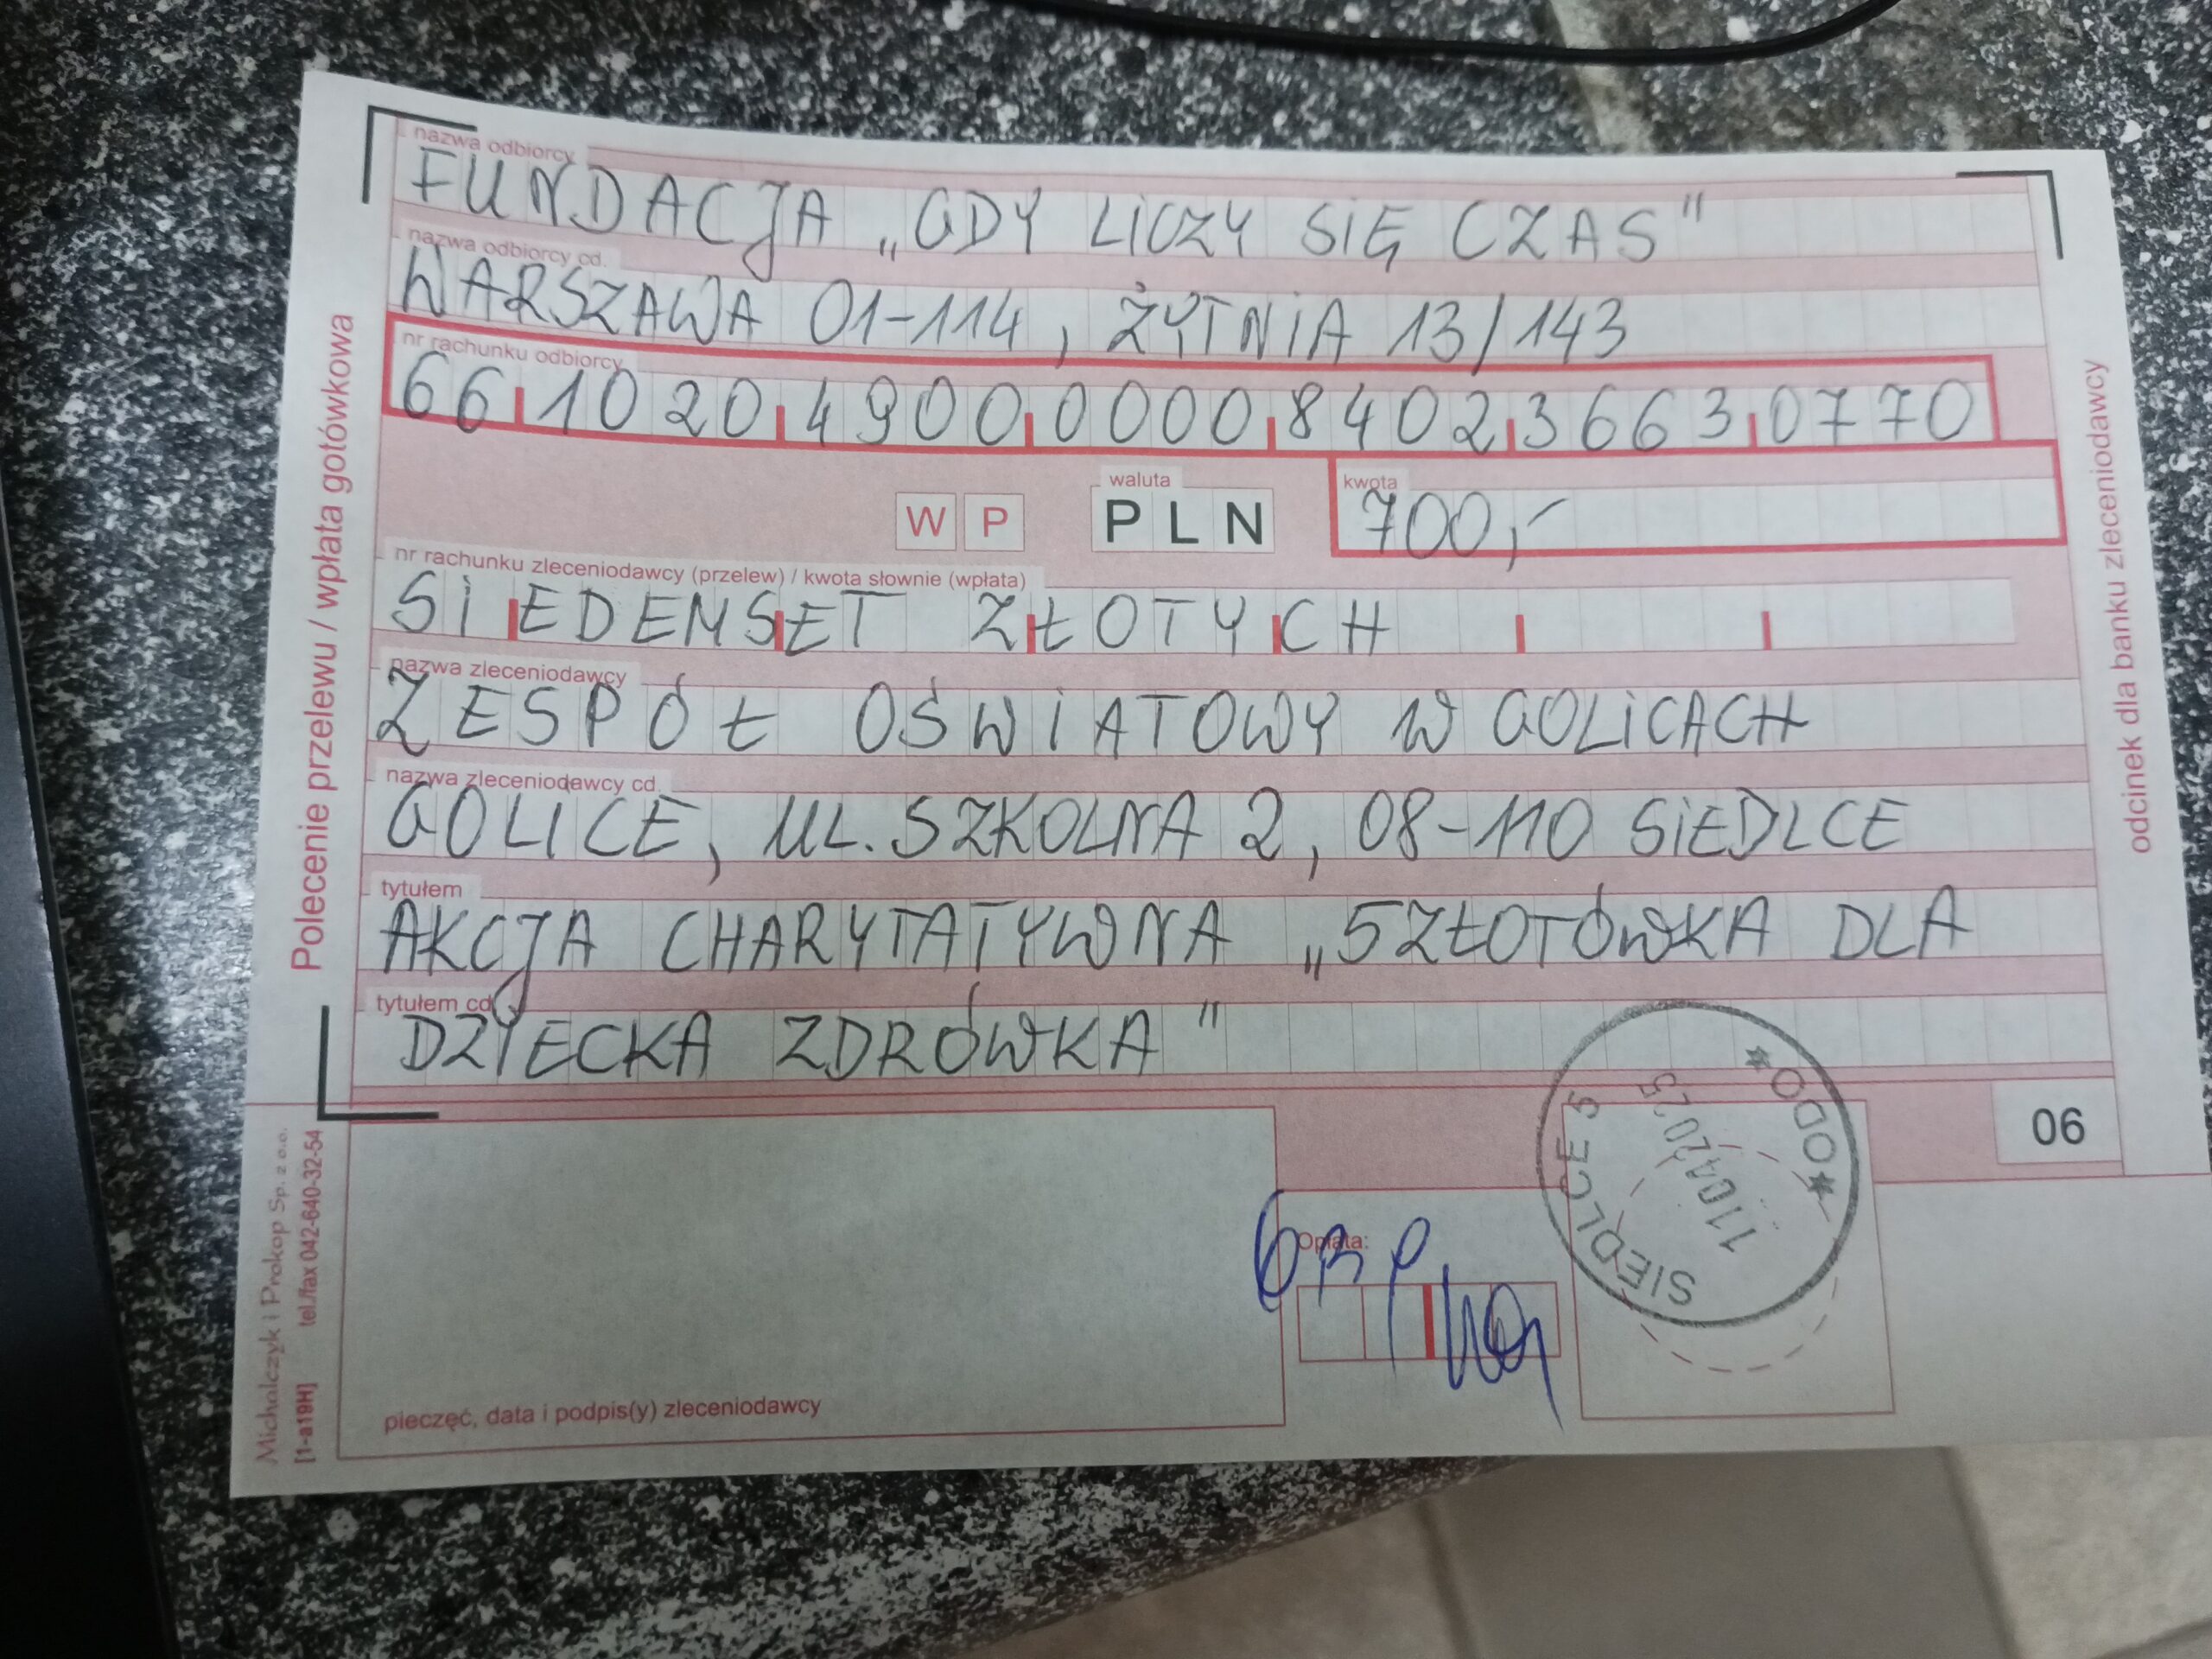 nazwa odbiorcy
FUNDACJA „GDY LICZY SIĘ CZAS"
nazwa odbiorcy cd.
WARSZAWA 01-114, ŻYTNIA 13/143
nr rachunku odbiorcy
66 1020 4900 0000 8402 3663 0770
waluta
kwota
W P PLN 700,-
nr rachunku zleceniodawcy (przelew) / kwota słownie (wpłata)
SIEDEMSET ZŁOTYCH
nazwa zleceniodawcy
ZESPÓŁ OŚWIATOWY W GOLICACH
nazwa zleceniodawcy cd.
GOLICE, UL. SZKOLNA 2, 08-110 SIEDLCE
tytułem
AKCJA CHARYTATYWNA „5ZŁOTÓWKA DLA
tytułem cd.
DZIECKA ZDRÓWKA"
06
Opłata:
pieczęć, data i podpis(y) zleceniodawcy
SIEDLCE 5
11042025
*ODO*
Polecenie przelewu / wpłata gotówkowa
odcinek dla banku zleceniodawcy
Michalczyk i Prokop Sp. z o.o.
tel./fax 042-640-32-54
[1-a19H]